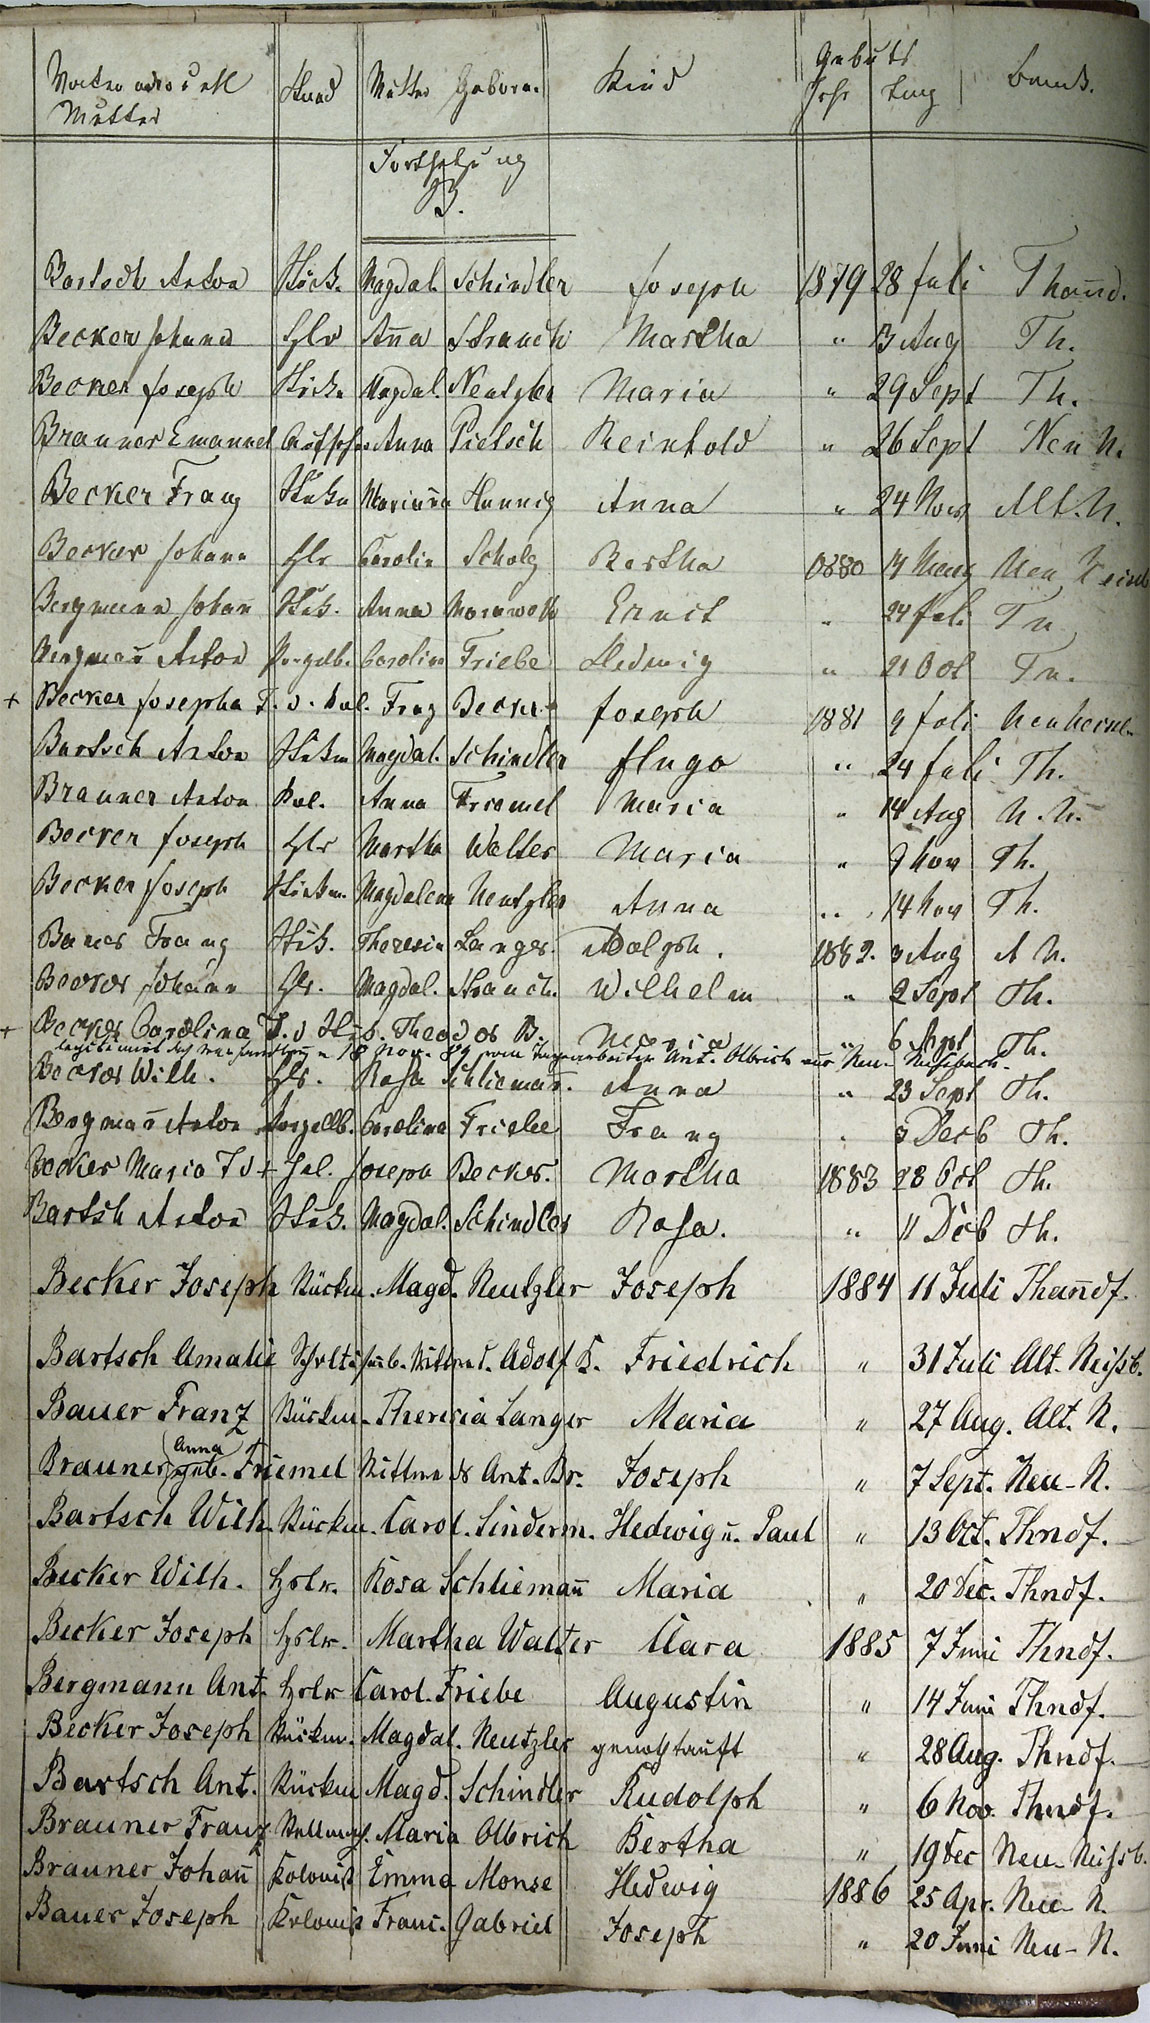 Vater oder ill Mutter Stand Mutter Geborn. Kind Geburts Jahr Tag
Fortsetzung
B.
Bartsch Anton Stück. Magdal. Schindler Joseph 1879 28 Juli Thannd.
Becker Johann Hslr Anna Strauch Martha " 13 Aug Th.
Becker Joseph Magdal. Neutzler Maria " 29 Sept Th.
Brauner Emanuel Anna Pietsch Reinhold " 26 Sept Neu N.
Becker Franz Marianna Hannig Anna " 24 Nov Alt. N.
Becker Johann Hslr Carolin Scholz Bertha 1880 Neu
Bergmann Johan Anna Ernst " 24 Juli Tn
Bergman̄ Anton Carolina Friebe Hedwig " 21 Oct Tn.
+ Becker Josepha T. d. Franz Becker Joseph 1881 9 Juli
Bartsch Anton Magdal. Schindler Hugo " 24 Juli Th.
Brauner Anton Anna Friemel Maria " 14 Aug N. N.
Becker Joseph Hslr Martha Walter Maria " 9 Nov Th.
Becker Joseph Stückm. Magdalena Neutzler Anna " 14 Nov Th.
Bauer Franz Stük. Theresia Langer. Adolph. 1882. 3 Aug A N.
Becker Johann Hslr. Magdal. Strauch. Wilhelm " 2 Sept Th.
+ Becker Carolina T. d Stük. Theodor B. Maria " 6 Sept Th.
18 Nov. 89 vom Ant. Olbrich aus Neu-Neissbach.
Becker Wilh. Hslr. Rosa Schlieman̄. Anna " 23 Sept Th.
Bergman̄ Anton Carolina Friebe Franz " 3 Decb Th.
Becker Maria T d + Joseph Becker. Martha 1883 28 Oct Th.
Bartsh Anton Stük. Magdal. Schindler Rosa. " 11 Dcb Th.
Becker Joseph Stückm. Magd. Neutzler Joseph 1884 11 Juli Than̄df.
Bartsch Amalie Adolf B. Friedrich " 31 Juli Alt. Neissb.
Bauer Franz Stückm. Theresia Langer Maria " 27 Aug. Alt. N.
Brauner (Anna geb. Friemel Wittwe ds Ant. Br. Joseph " 7 Sept. Neu-N.
Bartsch Wilh. Stückm. Carol. Linderm. Hedwig u. Paul " 13 Oct. Thndf.
Becker Wilh. Hslr. Rosa Schlieman̄ Maria " 20 Dec. Thndf.
Becker Joseph Hslr. Martha Walter Clara 1885 7 Juni Thndf.
Bergmann Ant. Hslr Carol. Friebe Augustin " 14 Juni Thndf.
Becker Joseph Stückm. Magdal. Neutzler genothtauft " 28 Aug. Thndf.
Bartsch Ant. Stückm Magd. Schindler Rudolph " 6 Nov. Thndf.
Brauner Franz Maria Olbrich Bertha " 19 Dec Neu-Neissb.
Brauner Johan̄ Kolonist Emma Monse Hedwig 1886 25 Apr. Neu-N.
Bauer Joseph Kolonis Franc. Gabriel Joseph " 20 Juni Neu-N.